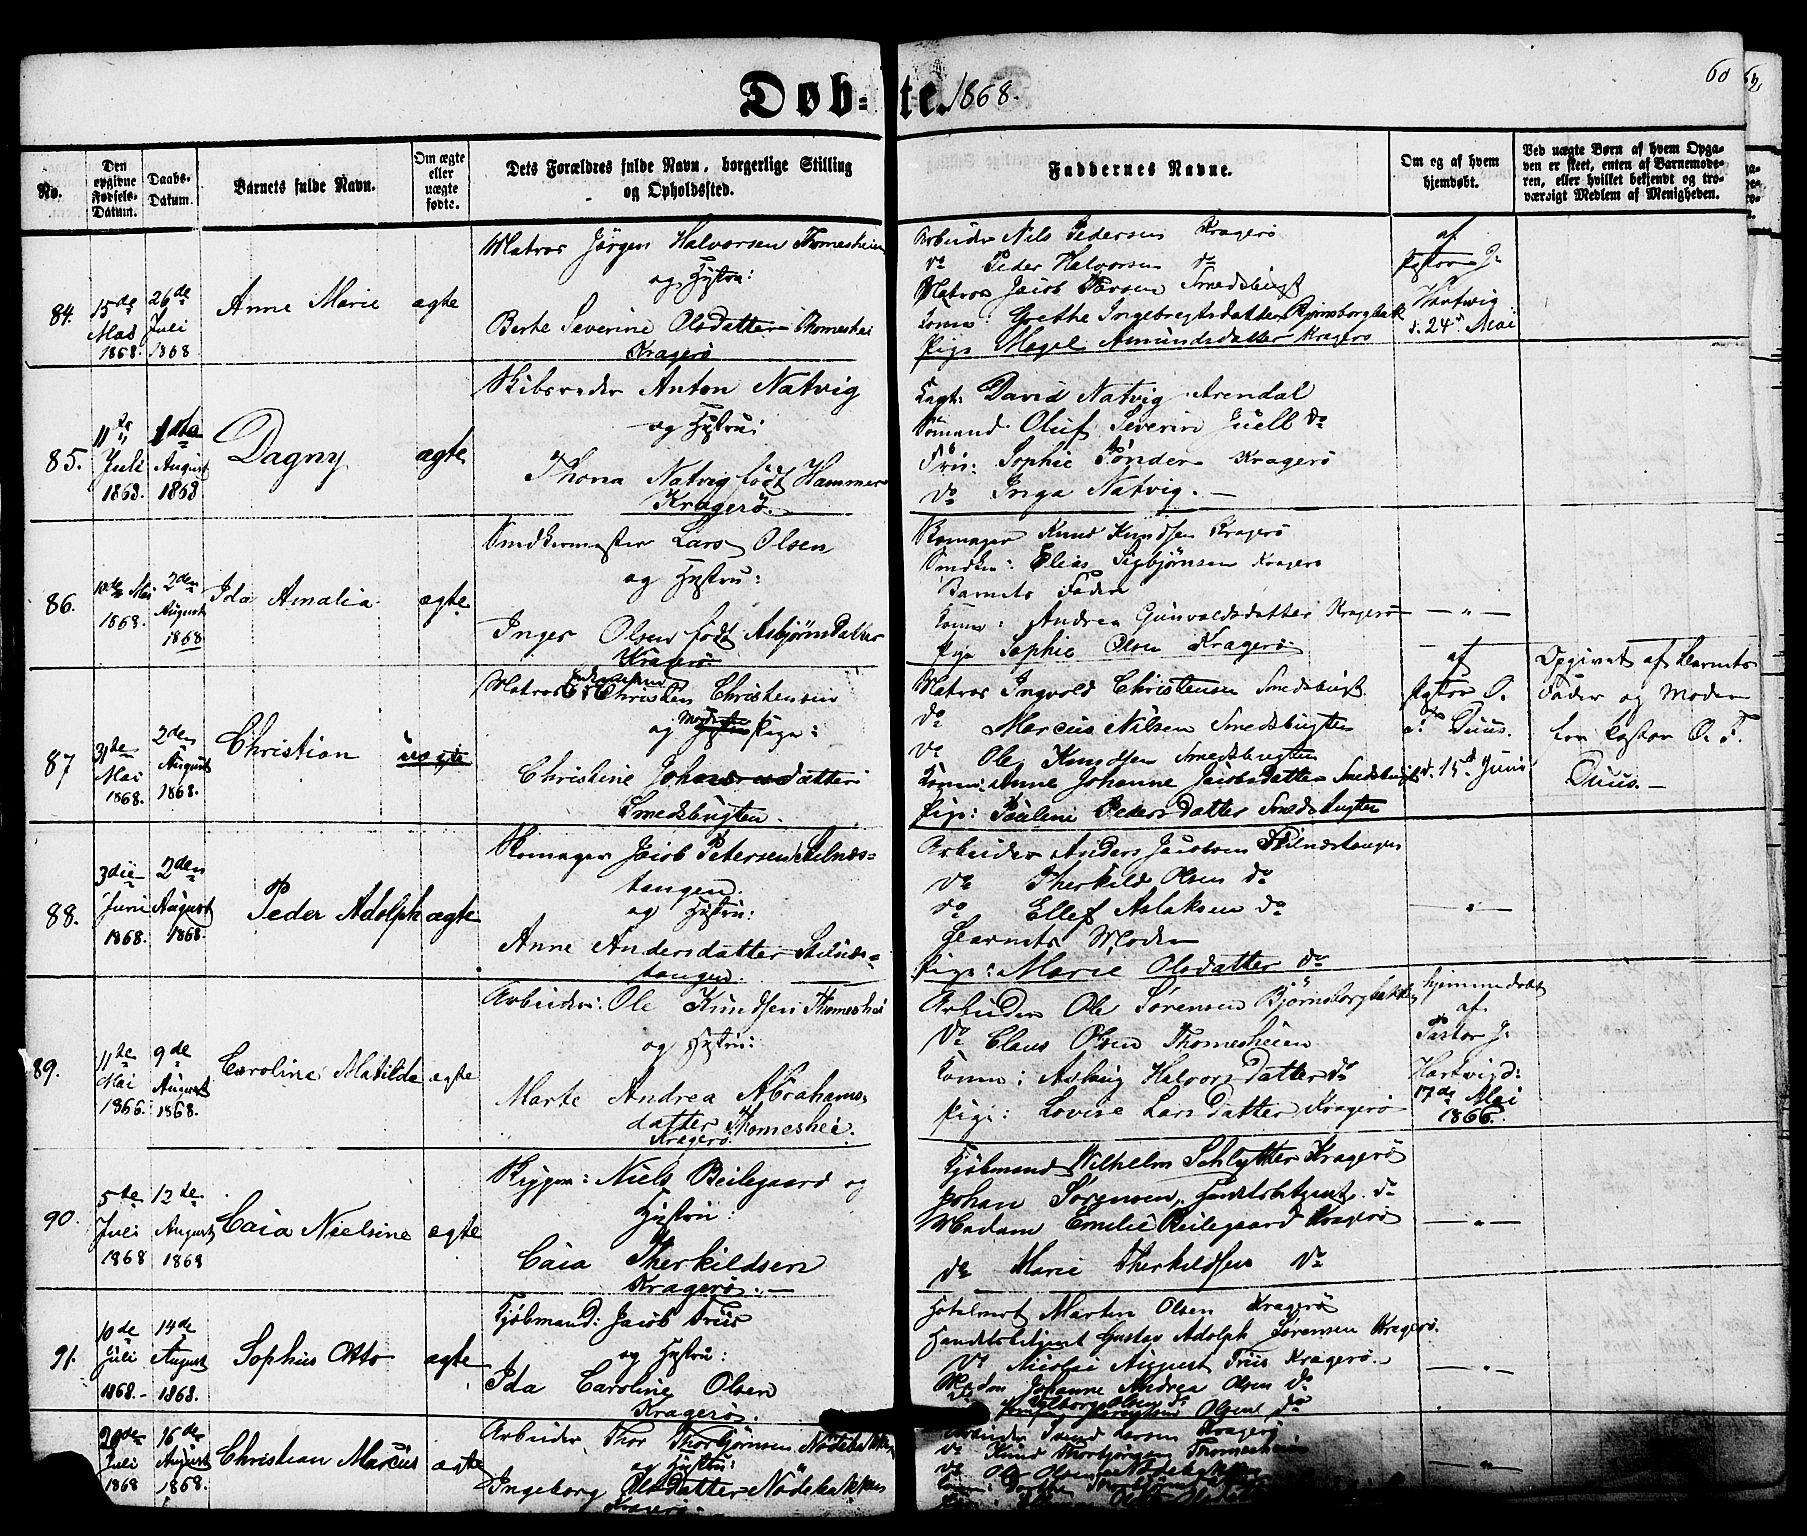 Døb-te. 1868.
60
62
No.
Den opgivne Fødsels-Datum.
Daabs-Datum.
Barnets fulde Navn.
Om ægte eller uægte fødte.
Dets Forældres fulde Navn, borgerlige Stilling og Opholdssted.
Faddernes Navne.
Om og af hvem hjemdøbt.
Ved uægte Børn af hvem Opgaven er skeet, enten af Barnemoderen, eller hvilket bekjendt og troværdigt Medlem af Menigheden.
84.
15de Mai 1868.
26de Juli 1868
Anne Marie
ægte
Matros Jörgen Halvorsen Thomesheien
og Hustru:
Berte Severine Olsdatter Thomeshei
Kragerö
Arbeider Nils Pedersen Kragerö
do Peder Halvorsen do
Matros Jacob Smedsbugt
Kone: Grethe Ingebregtsdatter Bjørnsborgbak
Pige Amundsdatter Kragerö
af
Pastor J.
Hartwig
d. 24de Mai
85.
11te Juli 1868.
1ste August 1868
Dagny
ægte
Skibsreder Anton Natvig
og Hustru:
Thona Natvig født Hammer
Kragerö.
Capt: David Natvig Arendal
Sömand Oluf Severin Juell do
Frk: Sophie Kragerö
do Inga Natvig. —
86.
10de Mai 1868.
2den August 1868
Ida Amalia
ægte
Snedkermester Lars Olsen
og Hustru:
Inger Olsen født Asbjørnsdatter
Kragerö
Skomager Knud Knudsen Kragerö
Snedker: Elias Sigbjörnsen Kragerö
Barnets Fader
Kone: Andrea Gunvaldsdatter Kragerö
Pige Sophie Olsen Kragerö
— „ —
87
31te Mai 1868.
2den August 1868.
Christian
uægte
Matros Christen Christensen
og Pige:
Christine Johansdatter
Smedsbugten.
Matros Ingvold Christensen Smedsbugt
do Marcus Nilsen Smedsbugten
do Ole Knudsen Smedsbugten
Kone: Anne Johanne Jacobsdatter Smedsbugt
Pige: Pauline Pedersdatter Smedsbugten
af
Pastor O.
F. Duus.
d. 15de Juni
Opgivet af Barnets
Fader og Moder
for Pastor O. F.
Duus. —
88.
3die Juni 1868.
2den August 1868.
Peder Adolph
ægte
Skomager Jacob Petersen Stilnæs-
tangen.
og Hustru:
Anne Andersdatter Stilnæs-
tangen.
Arbeider Anders Jacobsen Stilnæstangen
do Therkild Olsen do
do Ellef Aslaksen do
Barnets Moder
Pige: Marie Olsdatter do
— „ —
89.
11te Mai 1866.
9de August 1868.
Caroline Matilde
ægte
Arbeider: Ole Knudsen Thomeshei
og Hustru:
Marte Andrea Abrahams-
datter Thomeshei.
Kragerö.
Arbeider Ole Sörensen Bjørnsborgbakken
do Claus Olsen Thomesheien
Kone: Aslaug Halvorsdatter do
Pige: Lovise Larsdatter Kragerö
hjemmedøbt
af
Pastor J.
Hartvig d:
17de Mai
1866.
90.
5te Juli 1868
12te August 1868
Caia Nielsine
ægte
Rigger: Niels Beilegaard og
Hustru:
Caia Therkildsen
Kragerö. —
Kjöbmand Wilhelm Schlytter Kragerö
Johan Sörensen, Handelsbetjent do
Madam Emilie Beilegaard Kragerö
do Marie Therkildsen do
— „ —
91.
10de Juli 1868. -
14de August 1868.
Sophus Otto
ægte
Kjöbmand: Jacob Friis
og Hustru:
Ida Caroline Olsen
Kragerö.
Hotelvert Martin Olsen Kragerö
Handelsbetjent Gustav Adolph Sörensen Kragerö.
do Nicolai August Friis Kragerö.
Madm Johanne Andrea Olsen do
Olsen do
— „ —
20de Juli 1868
16de August 1868.
Christian Marcus
ægte
Arbeider Thor Thorbjörnsen Nödebakken
og Hustru:
Ingeborg Olsdatter Nödebakken
Kragerö.
Arbeider Larsen Kragerö
do Knud Thorbjörnsen Thomesheien
do Ole Olsen Nödebakken
Kone: Dorthea
— „ —